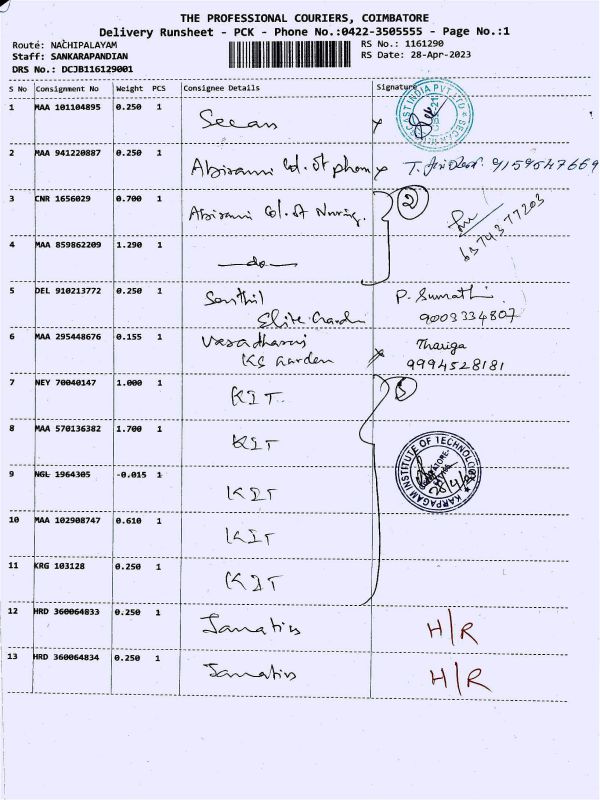 THE PROFESSIONAL COURIERS, COIMBATORE
Delivery Runsheet - PCK - Phone No.:0422-3505555 - Page No.:1
Route: NACHIPALAYAM
Staff: SANKARAPANDIAN
DRS No.: DCJB116129001
RS No.: 1161290
RS Date: 28-Apr-2023
S No Consignment No Weight PCS Consignee Details Signature
1 MAA 101104895 0.250 1 Secan x
2 MAA 941220887 0.250 1 Abirami Col. of pham x T. 9159547669
3 CNR 1656029 0.700 1 Abirami Col. of Nursing. 2 6374377203
4 MAA 859862209 1.290 1 —do—
5 DEL 910213772 0.250 1 Senthil P. Sumathi
Elite Garden 9003334807
6 MAA 295448676 0.155 1 Varadharaj Thariga
KG Garden x 9994528181
7 NEY 70040147 1.000 1 KIT 5
8 MAA 570136382 1.700 1 KIT
KARPAGAM INSTITUTE OF TECHNOLOGY
9 NGL 1964305 -0.015 1 KIT
10 MAA 102908747 0.610 1 KIT
11 KRG 103128 0.250 1 KIT
12 HRD 360064833 0.250 1 Janatics H/R
13 HRD 360064834 0.250 1 Janatics H/R